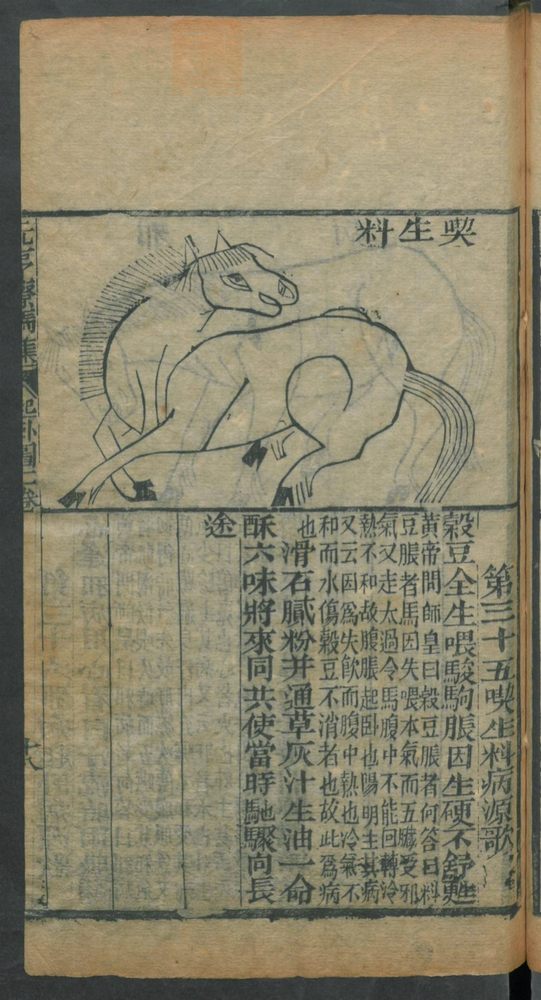 喫生料
第三十五喫生料病源歌
穀豆全生喂駿駒脹因生硬不舒甦
黄帝問師皇曰穀豆脹者何答曰料
豆脹者馬因失喂本氣而五臟受邪
氣又走太過令馬腹中不能回轉冷
熱不和故腹脹起卧也陽明主其病
又云因為失飲而腹中熱也冷氣不
和而水傷穀豆不消者也故此為病
也
滑石膩粉并通草灰汁生油一命
酥六味將來同共使當時馳驟向長
途
元亨療馬集
起卧圖一卷
十八